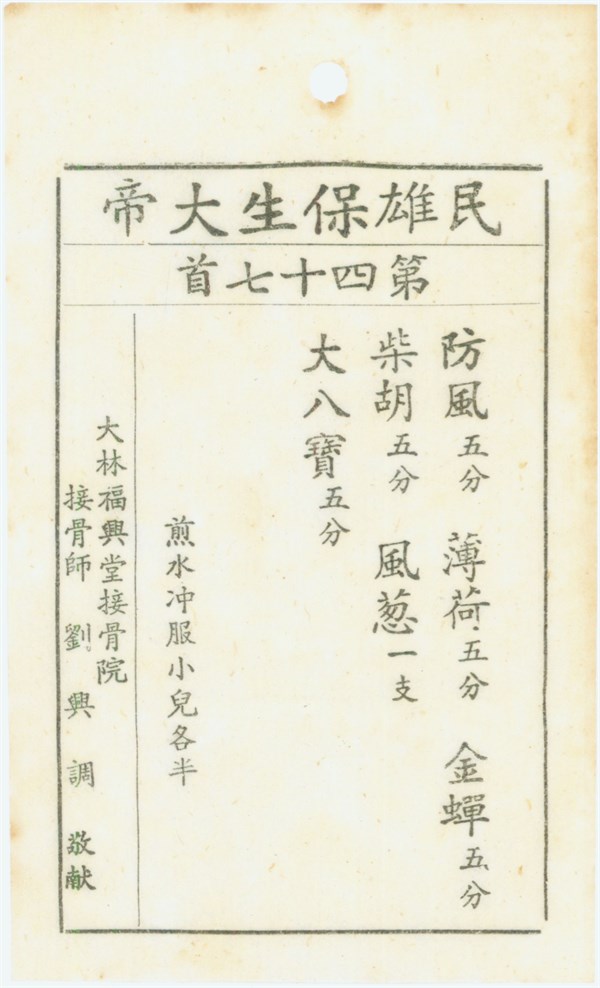 民雄保生大帝
第四十七首
防風五分 薄荷五分 金蟬五分
柴胡五分 風葱一支
大八寶五分
煎水冲服小兒各半
大林福興堂接骨院
接骨師 劉興調 敬献